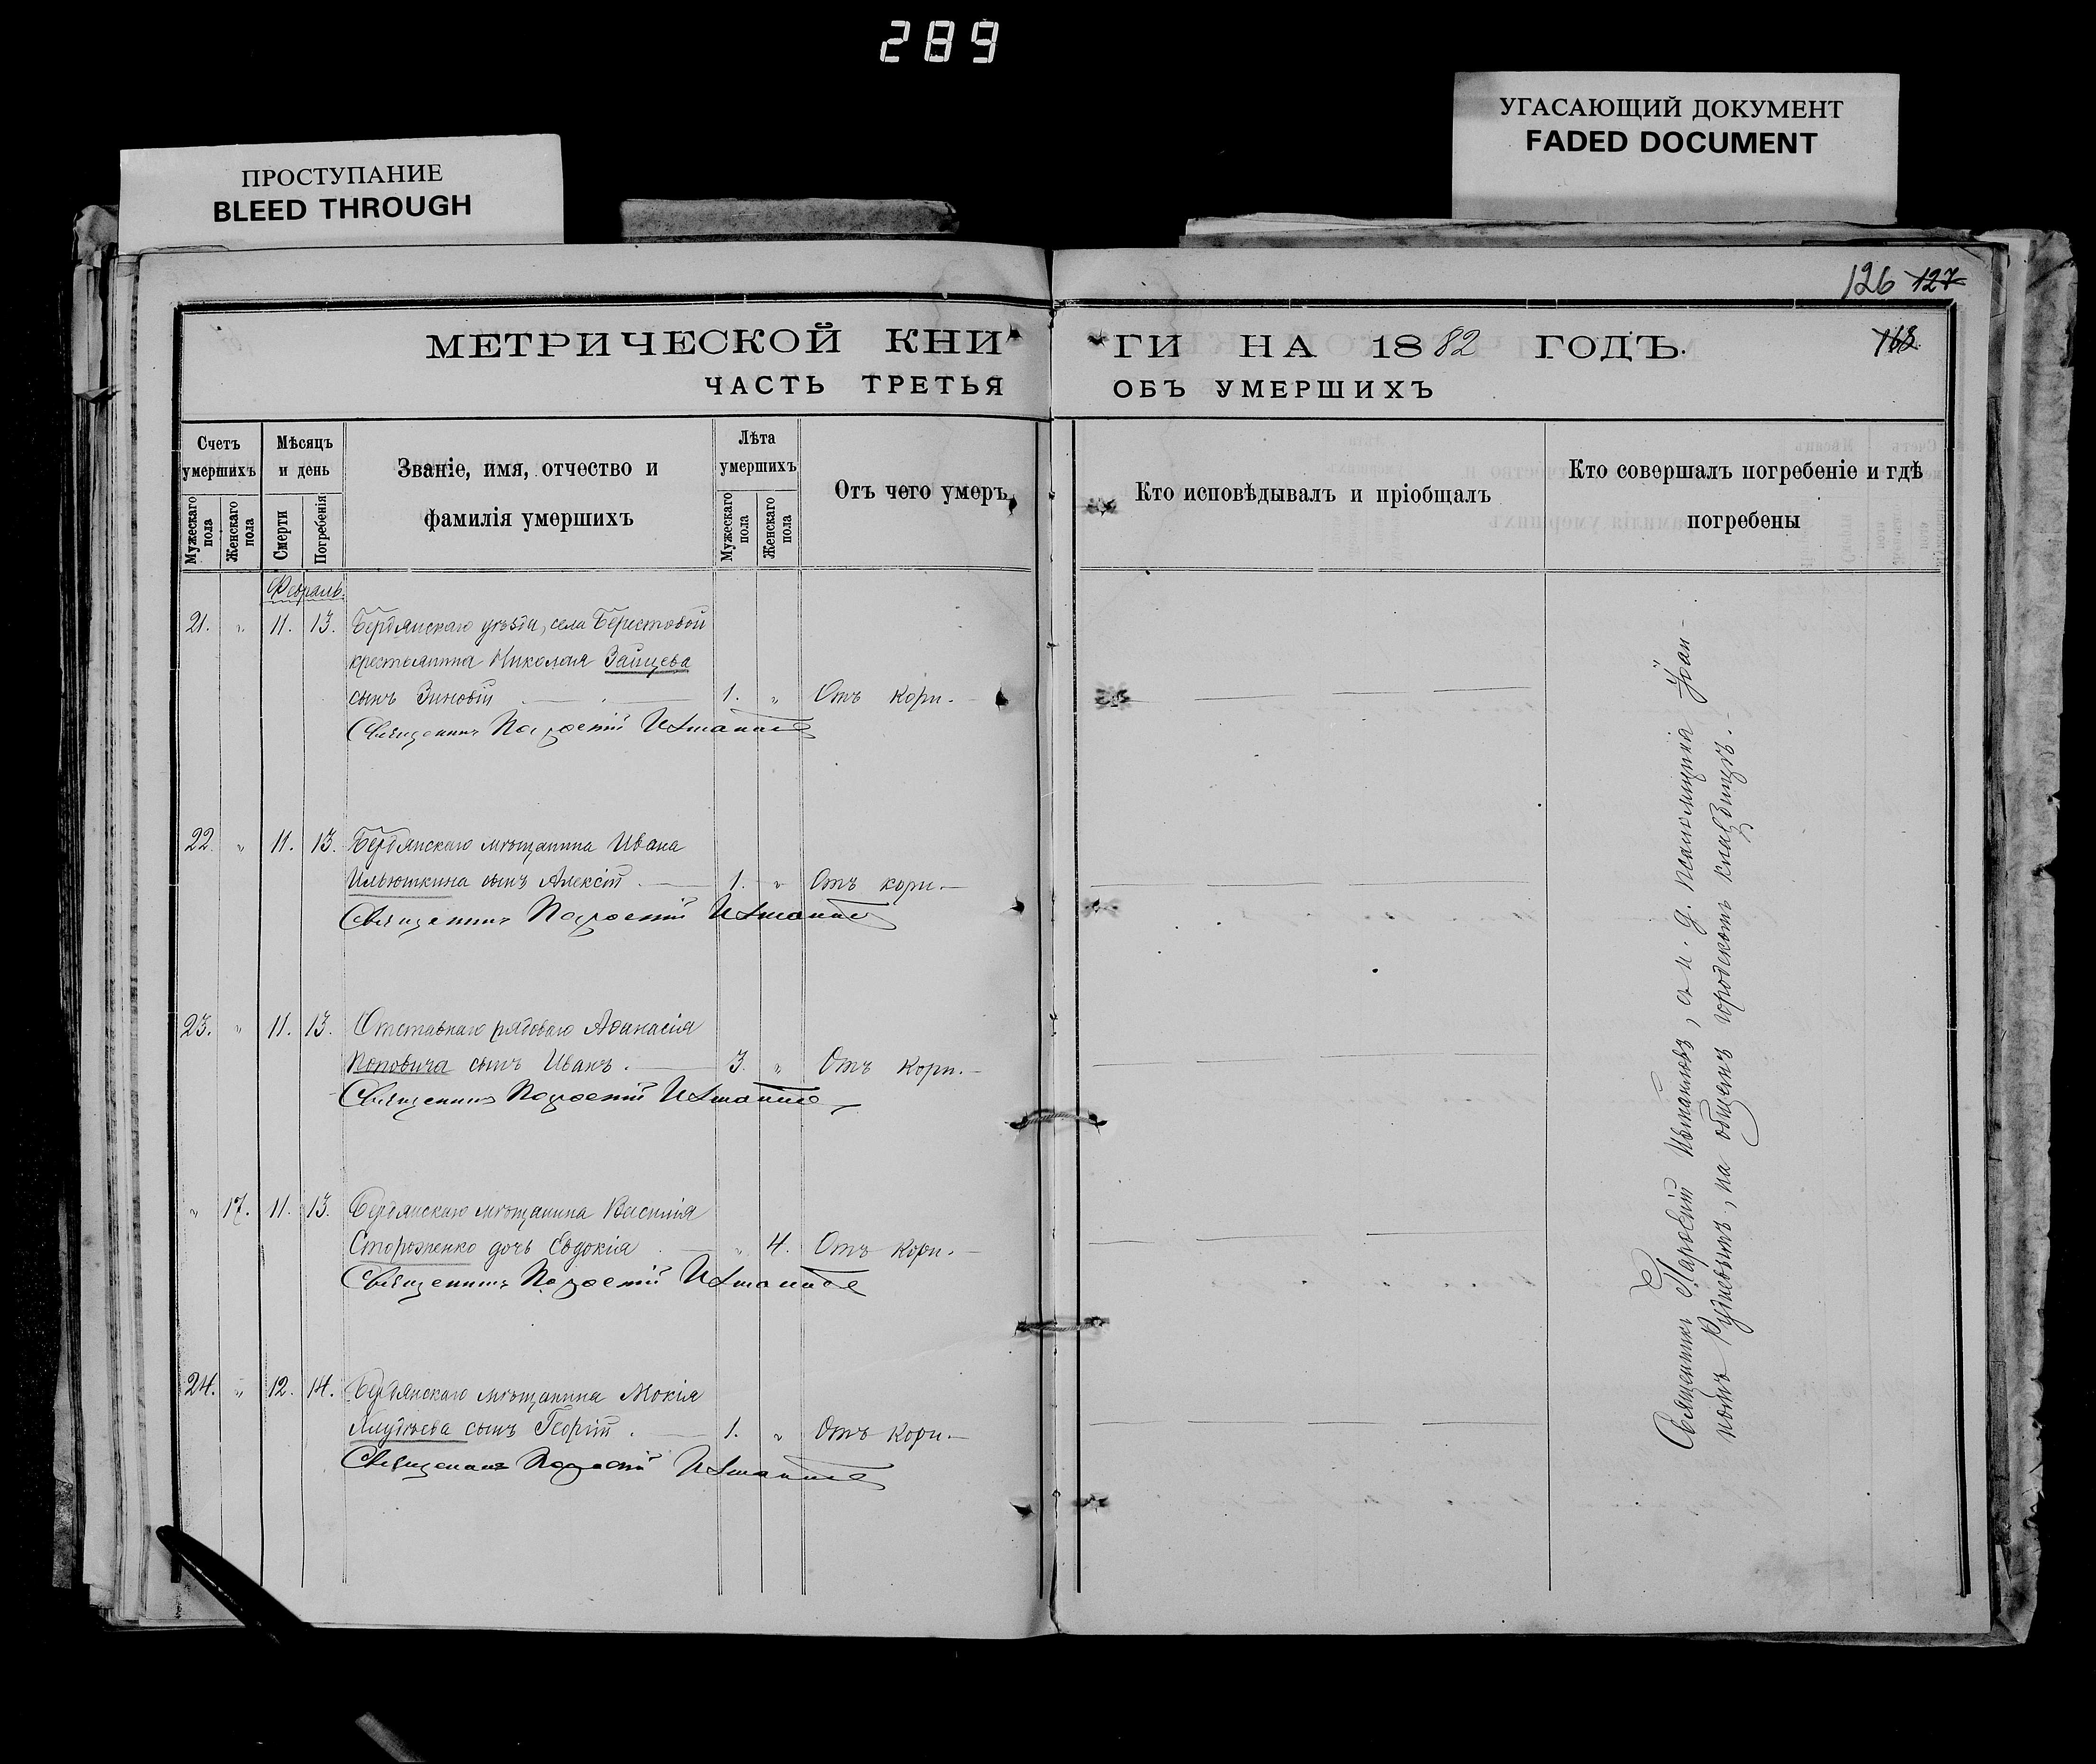 289
ПРОСТУПАНИЕ
BLEED THROUGH
УГАСАЮЩИЙ ДОКУМЕНТ
FADED DOCUMENT
126 127
МЕТРИЧЕСКОЙ КНИ
ЧАСТЬ ТРЕТЬЯ
Счетъ умершихъ
Мужескаго пола
Женскаго пола
Мѣсяцъ и день
Смерти
Погребенія
Званіе, имя, отчество и
фамилія умершихъ
Лѣта умершихъ
Мужескаго пола
Женскаго пола
Отъ чего умеръ
Февраль.
21. " 11. 13. Бердянскаго уѣзда, села Берестовой
крестьянина Николая Зайцева
сынъ Зиновій 1. " Отъ кори.
Священникъ
22. " 11. 13. Бердянскаго мѣщанина Ивана
Ильюшкина сынъ Алексій 1. " Отъ кори.
Священникъ
23. " 11. 13. Отставнаго рядоваго Аѳанасія
Поповича сынъ Иванъ. 3. " Отъ кори.
Священникъ
" 17. 11. 13. Бердянскаго мѣщанина Василія
Стороженко дочь Евдокія " 4. Отъ кори.
Священникъ
24. " 12. 14. Бердянскаго мѣщанина Мокія
сынъ Георгій. 1. " Отъ кори.
Священникъ
ГИ НА 1882 ГОДЪ.
ОБЪ УМЕРШИХЪ
Кто исповѣдывалъ и пріобщалъ
Кто совершалъ погребеніе и гдѣ
погребены
Священникъ съ и. д. псаломщика Іоан-
номъ Рудневымъ, на общемъ городскомъ кладбищѣ.